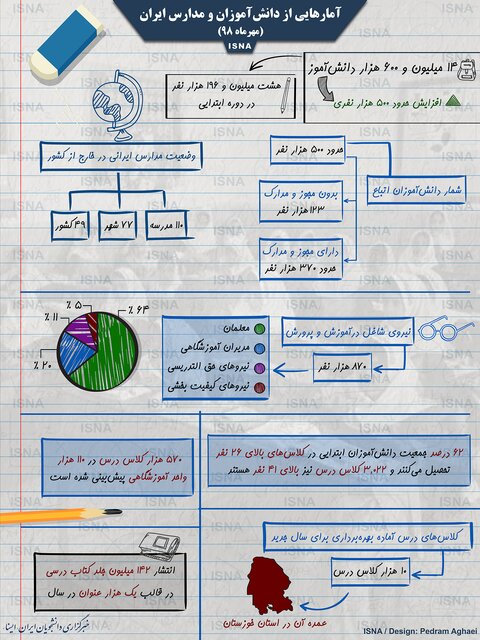 آمارهایی از دانش‌آموزان و مدارس ایران
(مهرماه ۹۸)
ISNA
۱۴ میلیون و ۶۰۰ هزار دانش‌آموز
افزایش حدود ۵۰۰ هزار نفری
هشت میلیون و ۱۹۶ هزار نفر
در دوره ابتدایی
شمار دانش‌آموزان اتباع
حدود ۵۰۰ هزار نفر
بدون مجوز و مدارک
۱۲۳ هزار نفر
دارای مجوز و مدارک
حدود ۳۷۰ هزار نفر
وضعیت مدارس ایرانی در خارج از کشور
۱۱۰ مدرسه
۷۷ شهر
۴۹ کشور
نیروی شاغل در آموزش و پرورش
۸۷۰ هزار نفر
معلمان
مدیران آموزشگاهی
نیروهای حق التدریسی
نیروهای کیفیت بخشی
٪ ۶۴
٪ ۲۰
٪ ۱۱
٪ ۵
۶۲ درصد جمعیت دانش‌آموزان ابتدایی در کلاس‌های بالای ۲۶ نفر
تحصیل می‌کنند و ۳,۰۲۲ کلاس درس نیز بالای ۴۱ نفر هستند
۵۷۰ هزار کلاس درس در ۱۱۰ هزار
واحد آموزشگاهی پیش‌بینی شده است
کلاس‌های درس آماده بهره‌برداری برای سال جدید
۱۰ هزار کلاس درس
عمده آن در استان خوزستان
انتشار ۱۴۲ میلیون جلد کتاب درسی
در قالب یک هزار عنوان در سال
خبرگزاری دانشجویان ایران، ایسنا
ISNA / Design: Pedram Aghaei